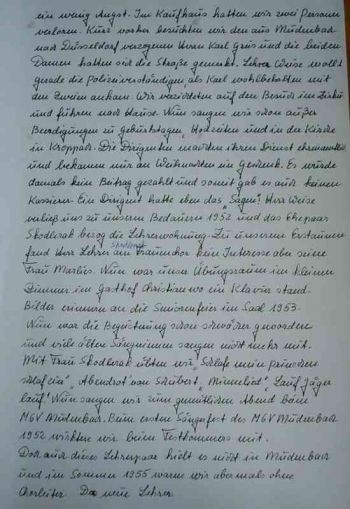 ein wenig Angst. Im Kaufhaus hatten wir zwei Personen
verloren. Kurz vorher besuchten wir den aus Müdenbach
nach Düsseldorf verzogenen Herrn Karl Greis und die beiden
Damen hatten sich die Straße gemerkt. Lehrer Weise wollte
gerade die Polizei verständigen, als Karl wohlbehalten mit
den Zweien ankam. Wir verzichteten auf den Besuch im Zirkus
und fuhren nach Hause. Nun sangen wir schon außer
Beerdigungen zu Geburtstagen, Hochzeiten und in der Kirche
in Kroppach. Die Dirigenten machten ihren Dienst ehrenamtlich
und bekamen nur an Weihnachten ein Geschenk. Es wurde
damals kein Beitrag gezahlt und somit gab es auch keinen
Kassierer. Ein Dirigent hatte eben das Sagen! Herr Weise
verließ uns zu unserm Bedauern 1952 und das Ehepaar
Skodlerak bezog die Lehrerwohnung. Zu unserem Erstaunen
fand Herr Lehrer am Frauenchor kein Interesse aber seine
Frau Marlies. Nun war unser Übungsraum im kleinen
Zimmer im Gasthof Christian wo ein Klavier stand.
Bilder erinnern an die Seniorenfeier im Saal 1953.
Nun war die Begeisterung schon schwächer geworden
und viele ältere Sängerinnen sangen nicht mehr mit.
Mit Frau Skodlerak übten wir "Schlafe mein Prinzchen
schlaf ein", Abendrot von Schubert, "Minnelied", Lauf Jäger
lauf. Nun sangen wir zum gemütlichen Abend beim
MGV Müdenbach. Beim ersten Sängerfest des MGV Müdenbach
1952 wirkten wir beim Festkommers mit.
Doch auch dieses Lehrerpaar hielt es nicht in Müdenbach
und im Sommer 1955 waren wir abermals ohne
Chorleiter. Der neue Lehrer